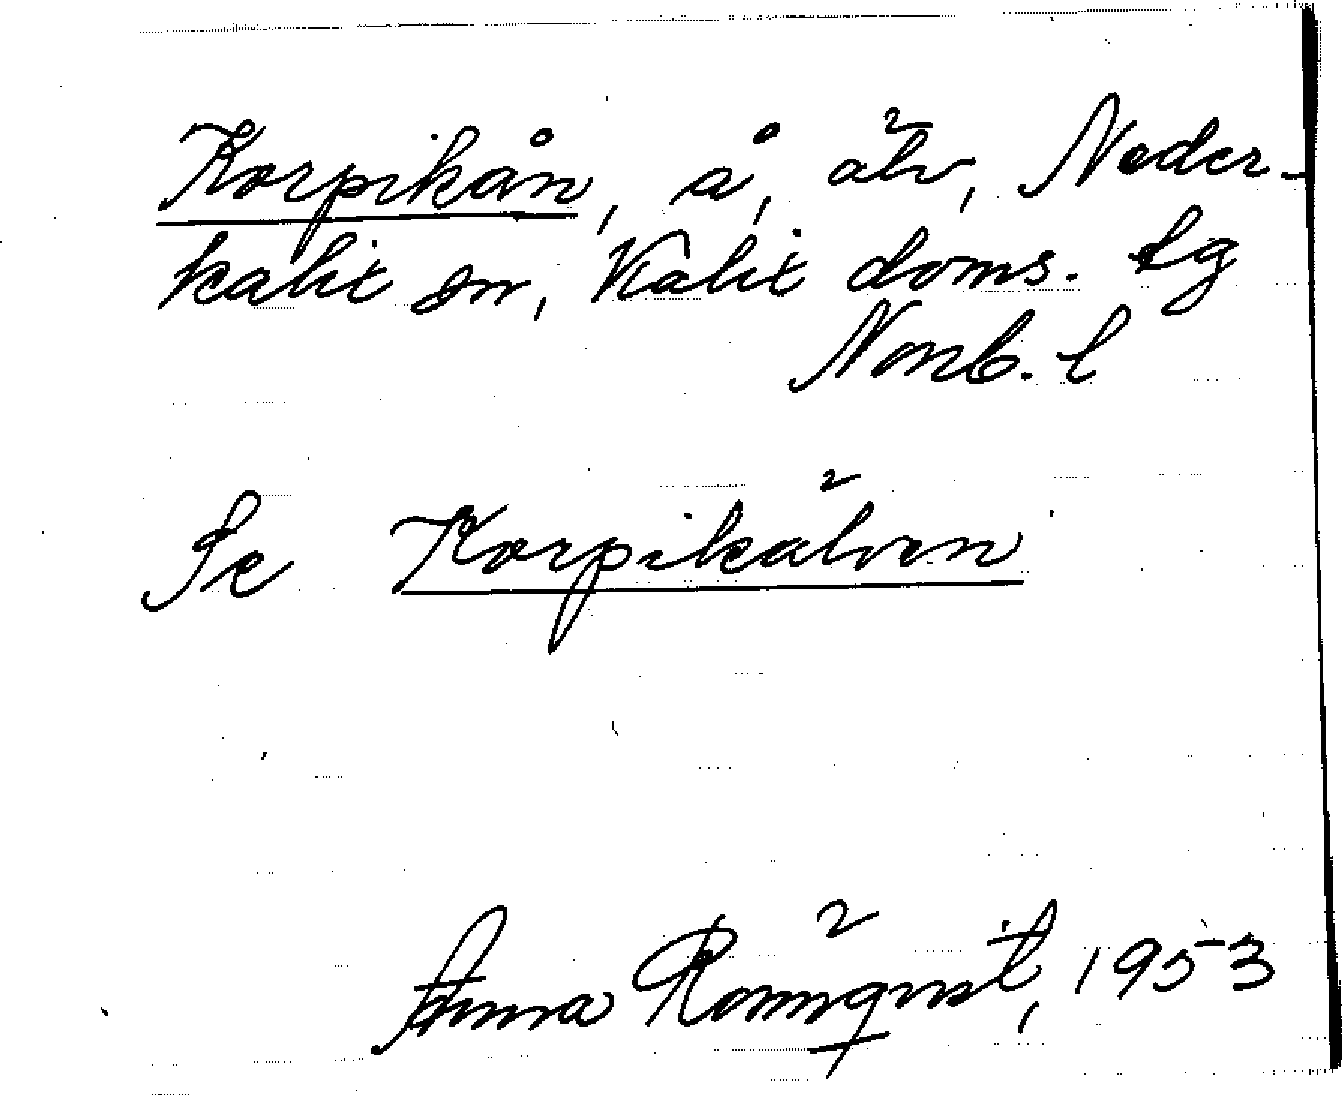 Korpikån, å, älv, Neder-
kalix sn, Kalix doms. lg
Norrb. l
Se Korpikälven
Anna Rönnqvist, 1953